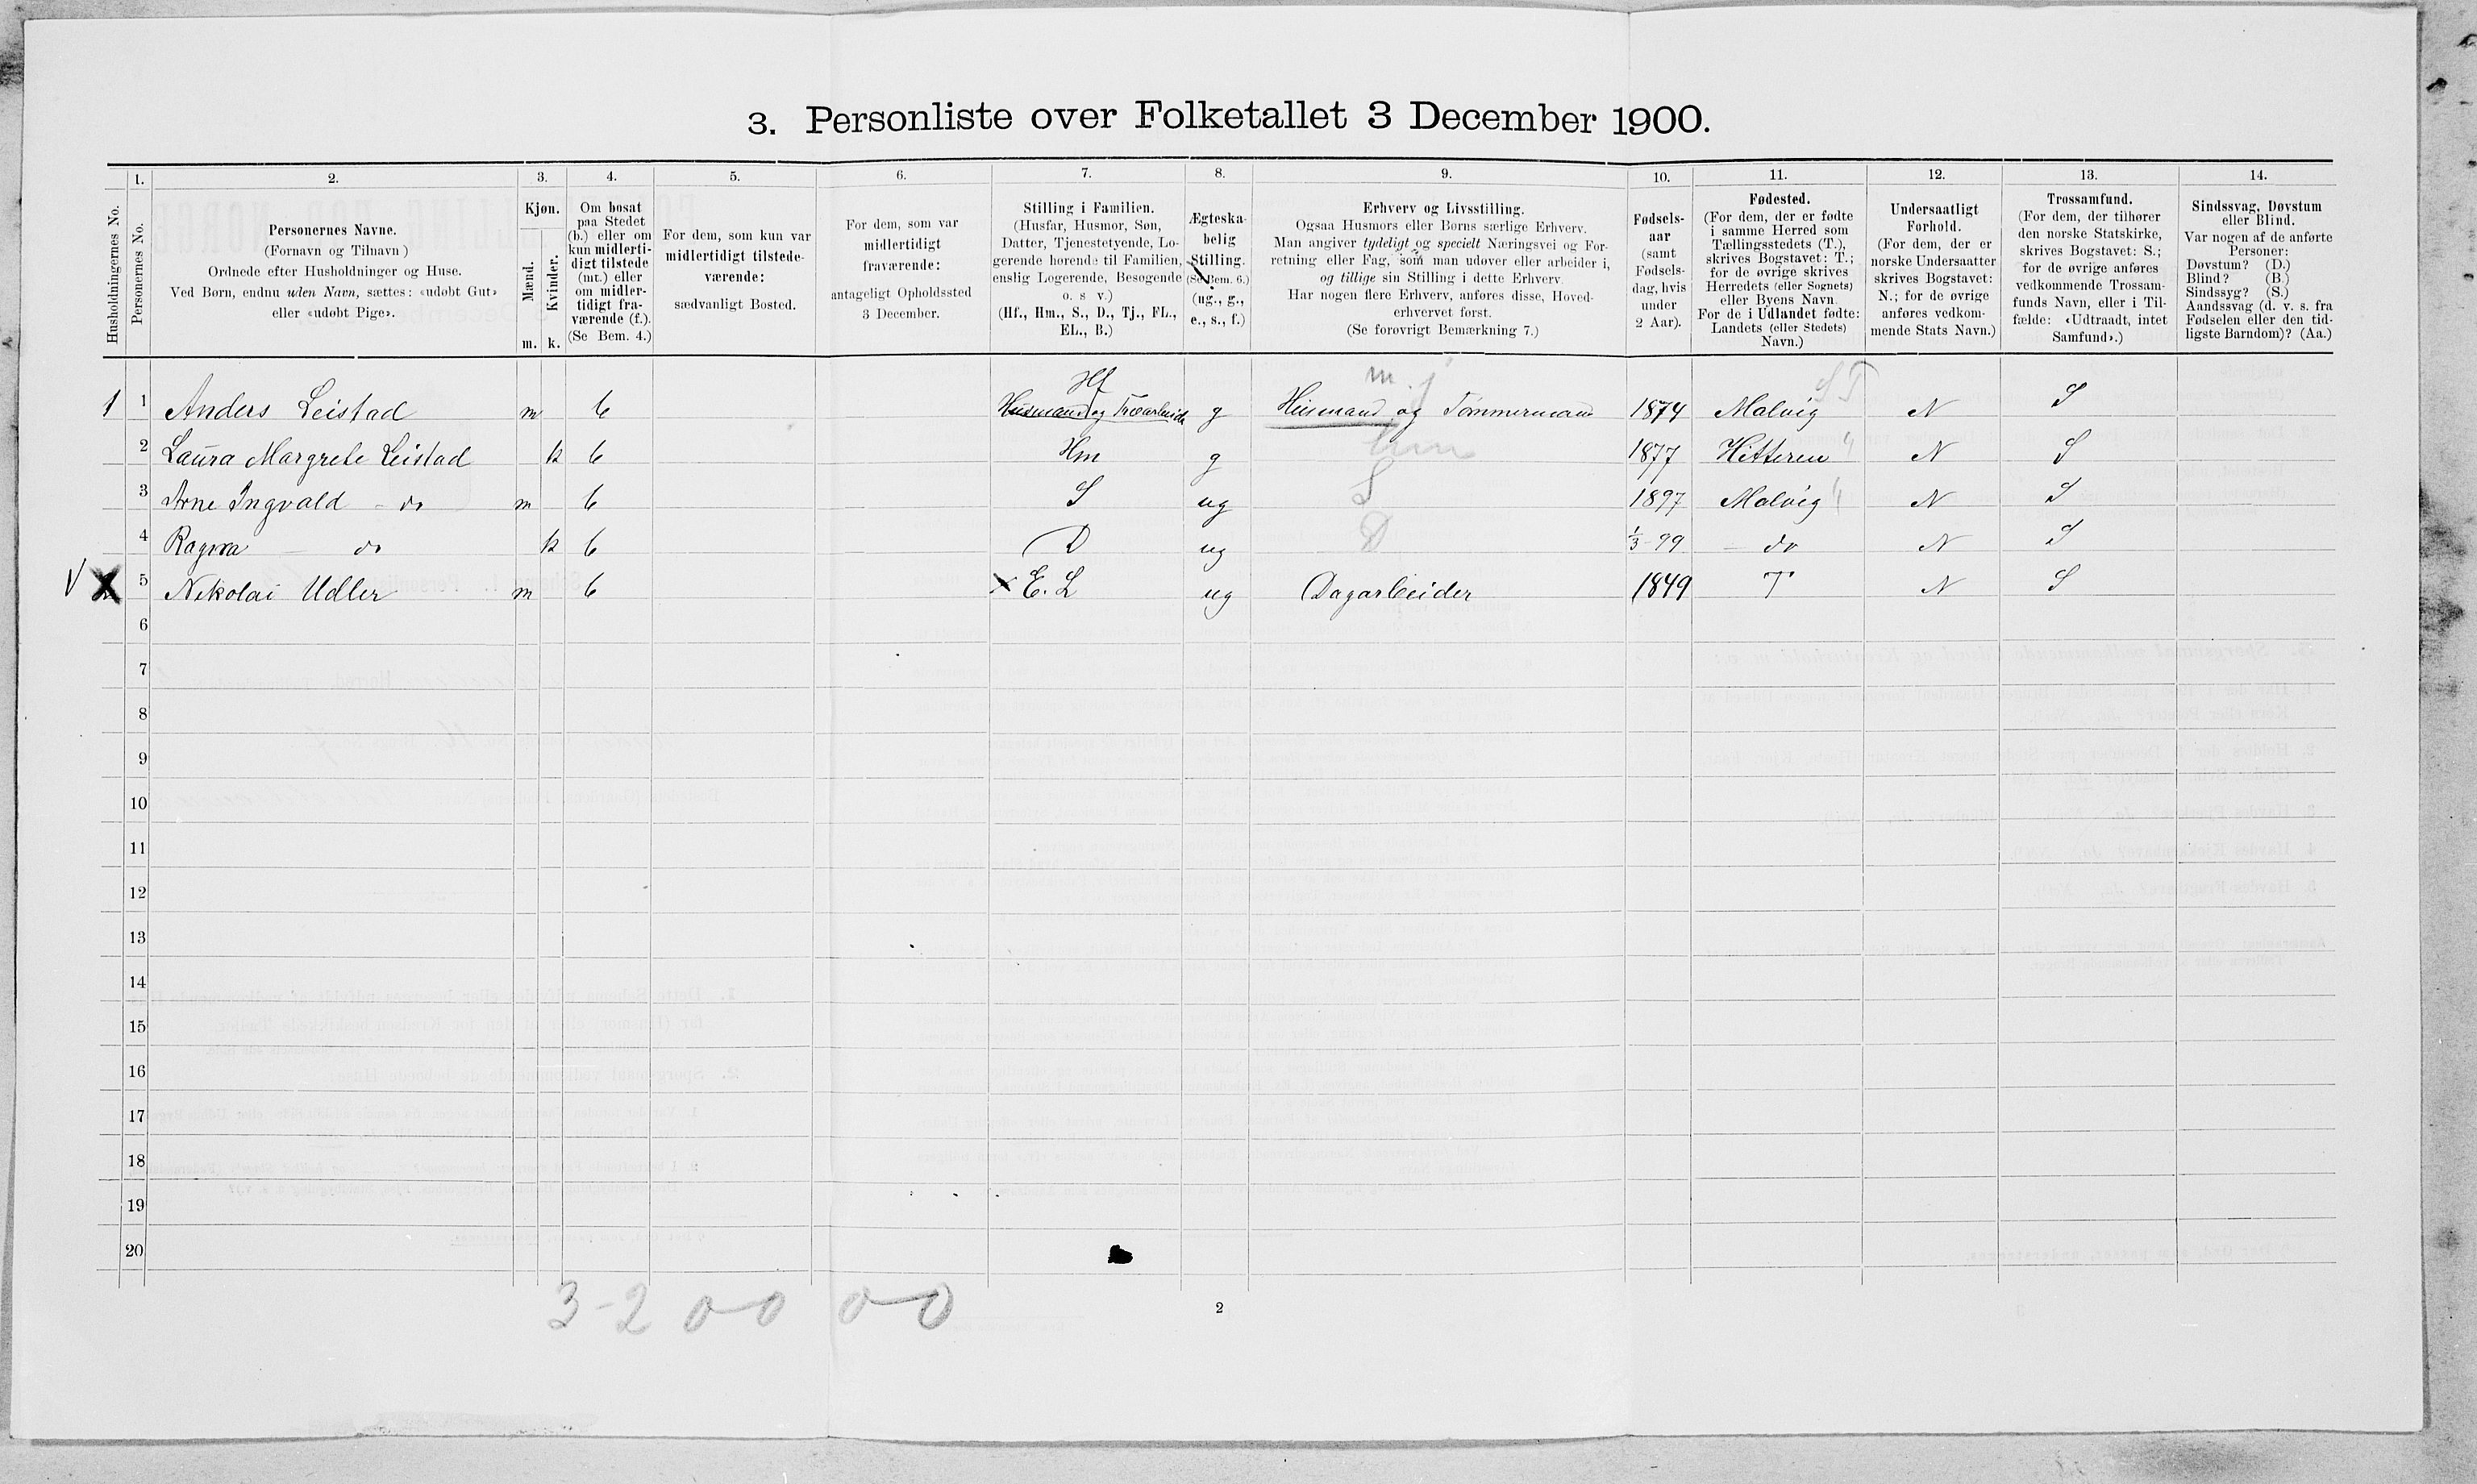 3. Personliste over Folketallet 3 December 1900.
Husholdningernes No.
1.
Personernes No.
2.
Personernes Navne.
(Fornavn og Tilnavn)
Ordnede efter Husholdninger og Huse.
Ved Børn, endnu uden Navn, sættes: «udøbt Gut»
eller «udøbt Pige».
3.
Kjøn.
Mænd.
Kvinder.
m. k.
4.
Om bosat
paa Stedet
(b.) eller om
kun midlerti-
digt tilstede
(mt.) eller
om midler-
tidigt fra-
værende (f.).
(Se Bem. 4.)
5.
For dem, som kun var
midlertidigt tilstede-
værende:
sædvanligt Bosted.
6.
For dem, som var
midlertidigt
fraværende:
antageligt Opholdssted
3 December.
7.
Stilling i Familien.
(Husfar, Husmor, Søn,
Datter, Tjenestetyende, Lo-
gerende hørende til Familien,
enslig Logerende, Besøgende
o. s v.)
(Hf., Hm., S., D., Tj., FL.,
EL., B.)
8.
Ægteska-
belig
Stilling.
(Se Bem. 6.)
(ug., g.,
e., s., f.)
9.
Erhverv og Livsstilling.
Ogsaa Husmors eller Børns særlige Erhverv.
Man angiver tydeligt og specielt Næringsvei og For-
retning eller Fag, som man udøver eller arbeider i,
og tillige sin Stilling i dette Erhverv.
Har nogen flere Erhverv, anføres disse, Hoved-
erhvervet først.
(Se forøvrigt Bemærkning 7.)
10.
Fødsels-
aar
(samt
Fødsels-
dag, hvis
under
2 Aar).
11.
Fødested.
(For dem, der er fødte
i samme Herred som
Tællingsstedets (T.),
skrives Bogstavet: T.;
for de øvrige skrives
Herredets (eller Sognets)
eller Byens Navn.
For de i Udlandet fødte:
Landets (eller Stedets)
Navn.)
12.
Undersaatligt
Forhold.
(For dem, der er
norske Undersaatter
skrives Bogstavet:
N.; for de øvrige
anføres vedkom-
mende Stats Navn.)
13.
Trossamfund.
(For dem, der tilhører
den norske Statskirke,
skrives Bogstavet: S.;
for de øvrige anføres
vedkommende Trossam-
funds Navn, eller i Til-
fælde: «Udtraadt, intet
Samfund».)
14.
Sindssvag, Døvstum
eller Blind.
Var nogen af de anførte
Personer:
Døvstum? (D.)
Blind? (B.)
Sindssyg? (S.)
Aandssvag (d. v. s. fra
Fødselen eller den tid-
ligste Barndom)? (Aa.)
Hf m. j S T
1 1 Anders Leistad m b Husmand og Træarbeide g Husmand og Tømmermand 1874 Malvig N S
2 Laura Margrete Leistad k b Hm g Hm 1877 Hitteren N S
3 Arne Ingvald - do m b S ug S 1897 Malvig N S
4 Ragna - do k b D ug D 1/3-99 - do N S
V X 5 Nikolai Udler m b x E. L ug Dagarbeider 1849 T N S
6
7
8
9
10
11
12
13
14
15
16
17
18
19
20
3-2 0-0 0-0
2